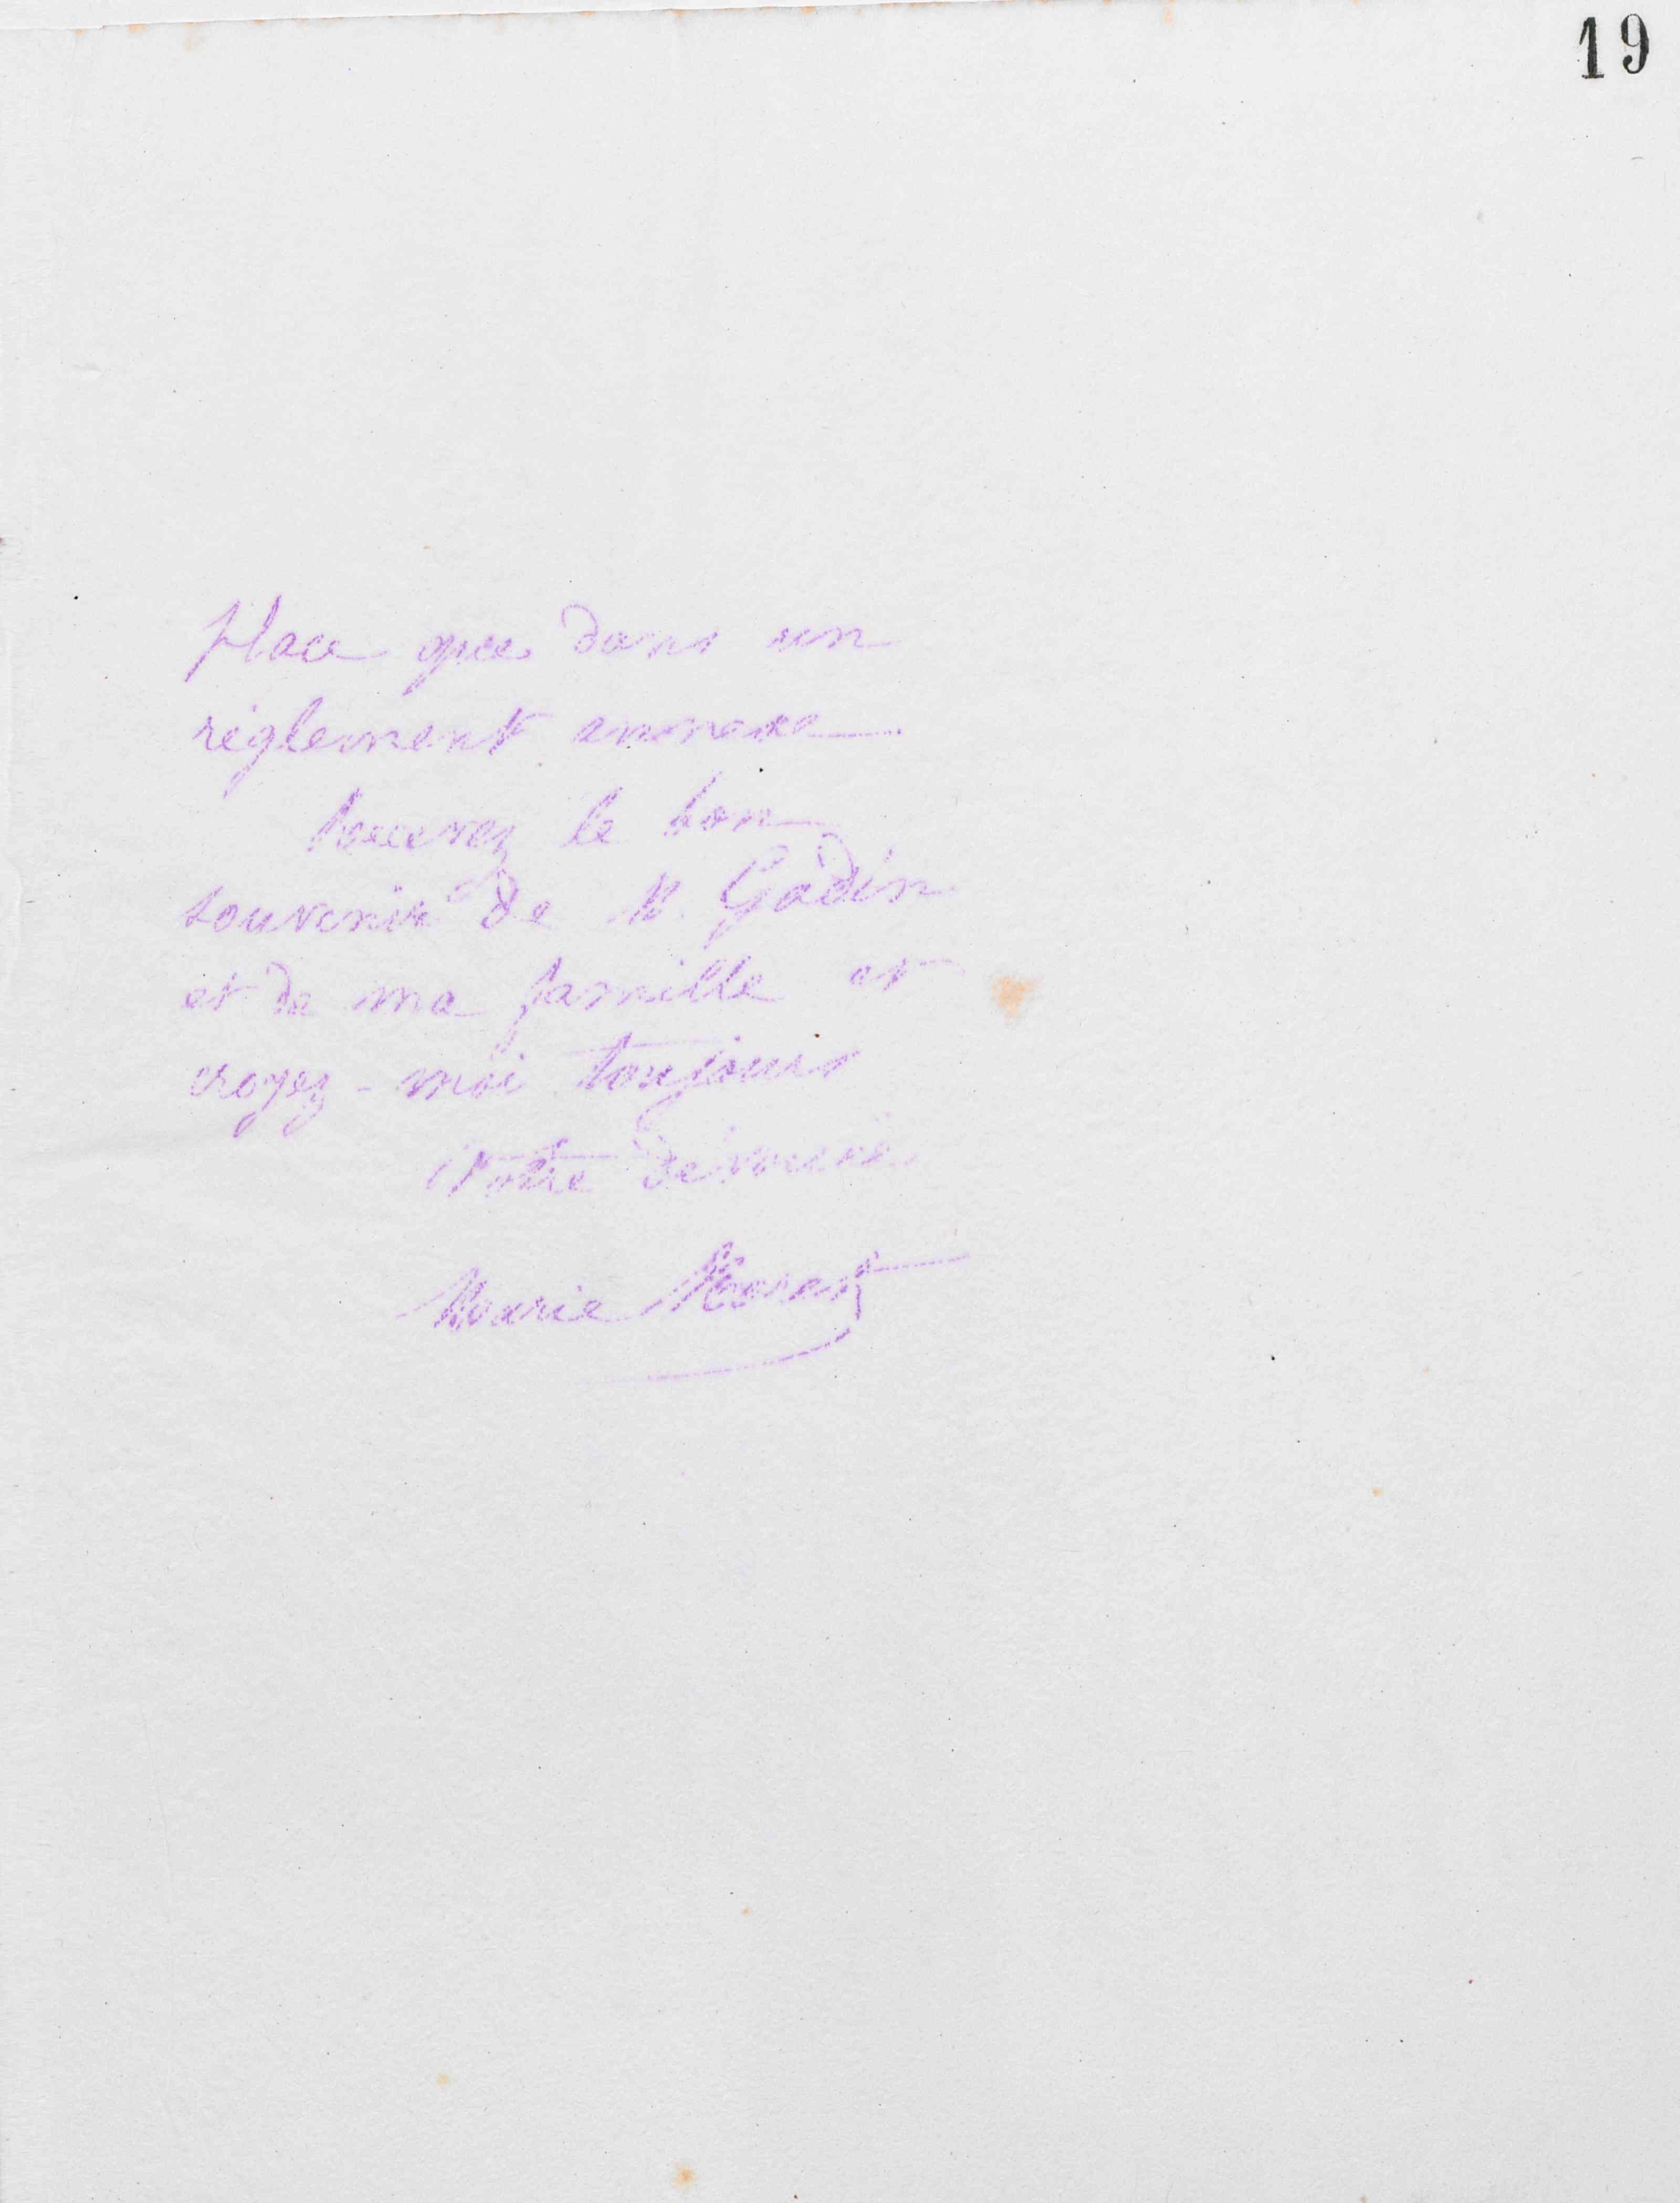 19
place que dans un
règlement annexe.
Recevez le bon
souvenir de M. Godin
et de ma famille et
croyez-moi toujours
Votre dévouée
Marie Moret